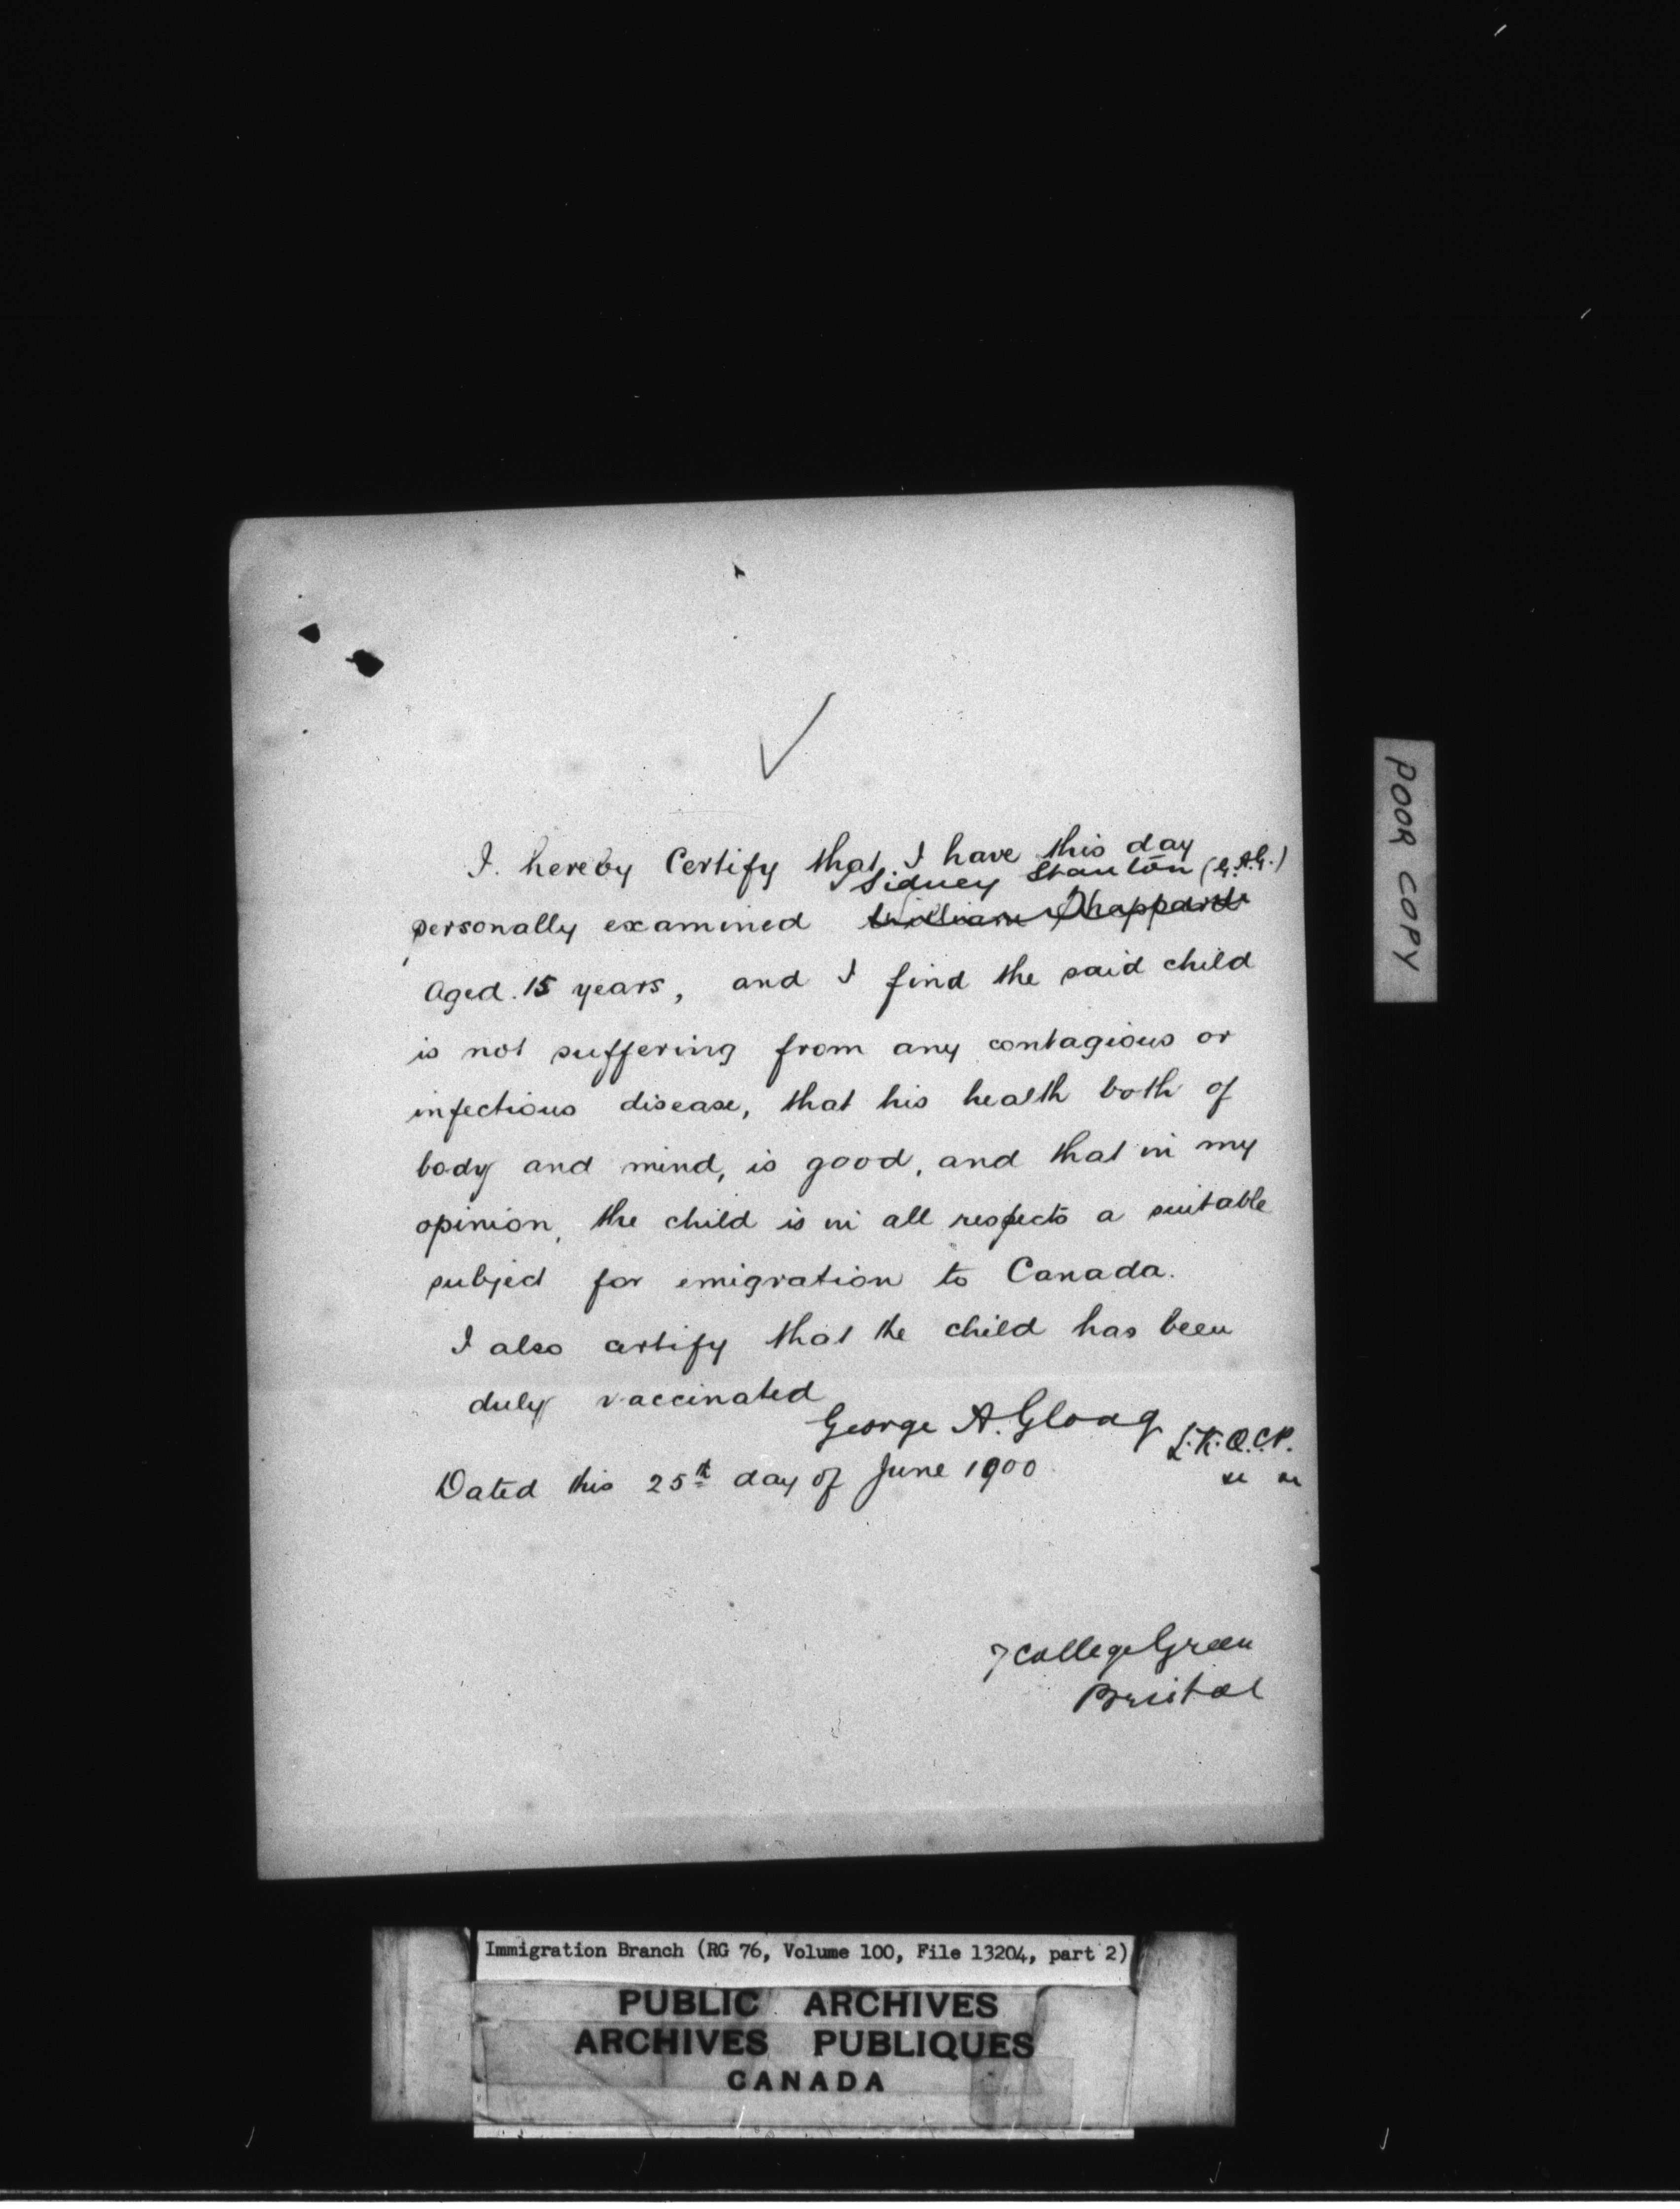 I. hereby Certify that I have this day
Sidney Stanton (G.A.G.)
personally examined William
Aged. 15 years, and I find the said child
is not suffering from any contagious or
infectious disease, that his health both of
body and mind, is good, and that in my
opinion, the child is in all respects a suitable
subject for emigration to Canada.
I also certify that the child has been
duly vaccinated
George A. Gloag L.K.Q.C.P.
Dated this 25th day of June 1900
7 College Green
Bristol
POOR COPY
Immigration Branch (RG 76, Volume 100, File 13204, part 2)
PUBLIC ARCHIVES
ARCHIVES PUBLIQUES
CANADA